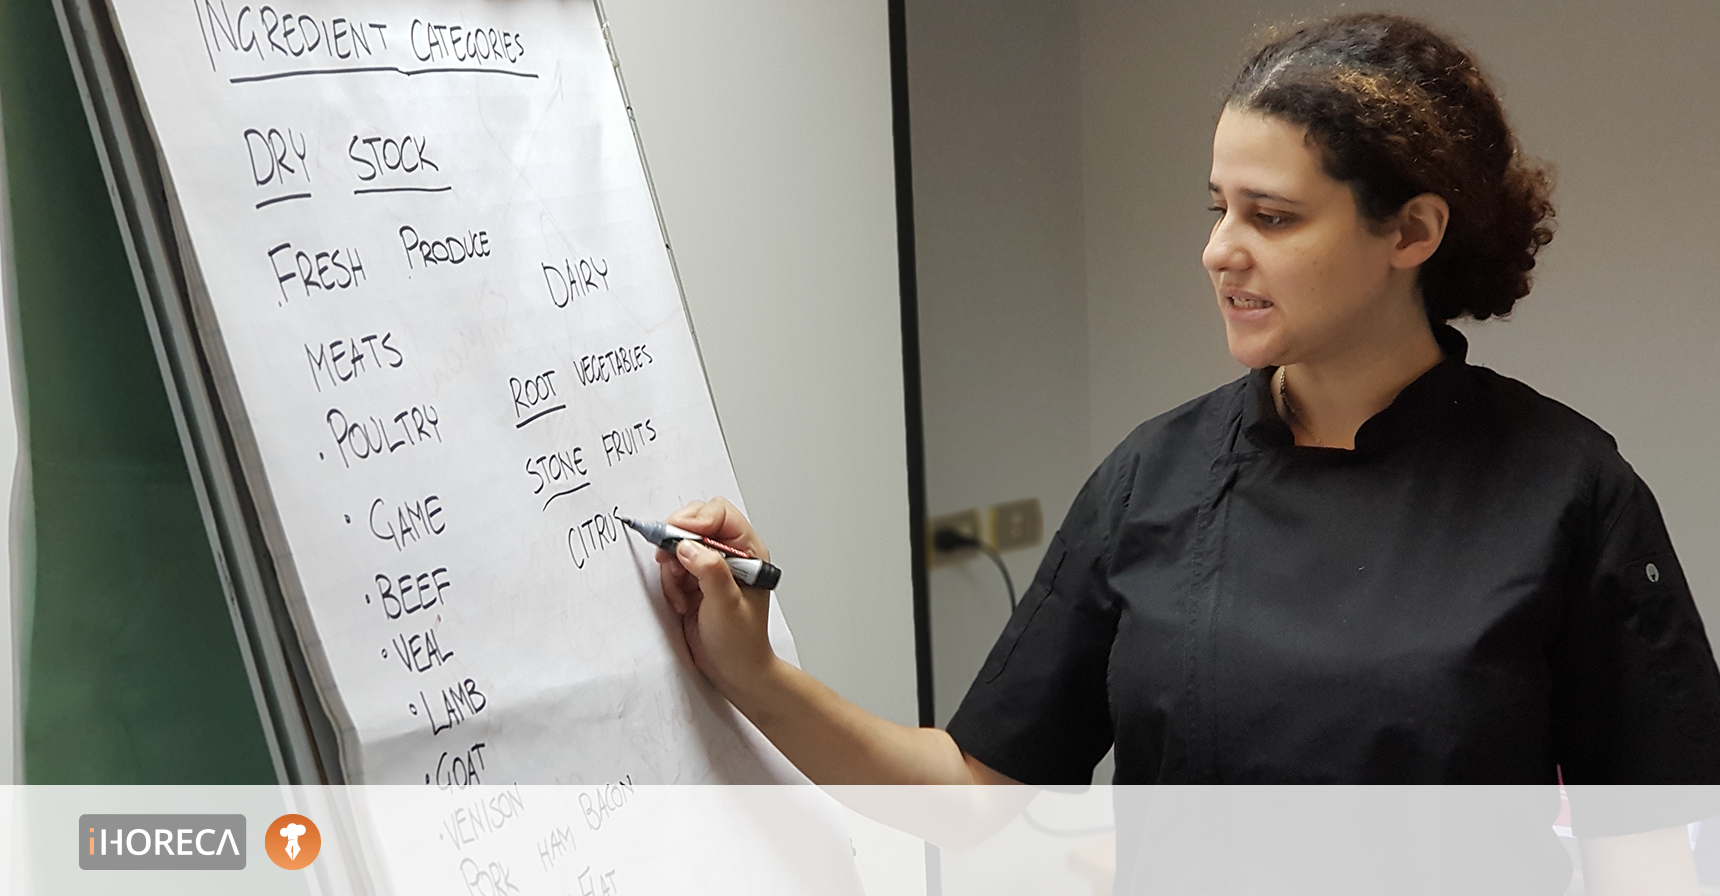 INGREDIENT CATEGORIES
DRY STOCK
FRESH PRODUCE
DAIRY
MEATS
ROOT VEGETABLES
• POULTRY
STONE FRUITS
• GAME
CITRUS
• BEEF
• VEAL
• LAMB
• GOAT
• VENISON
PORK HAM BACON
FLAT
iHORECA